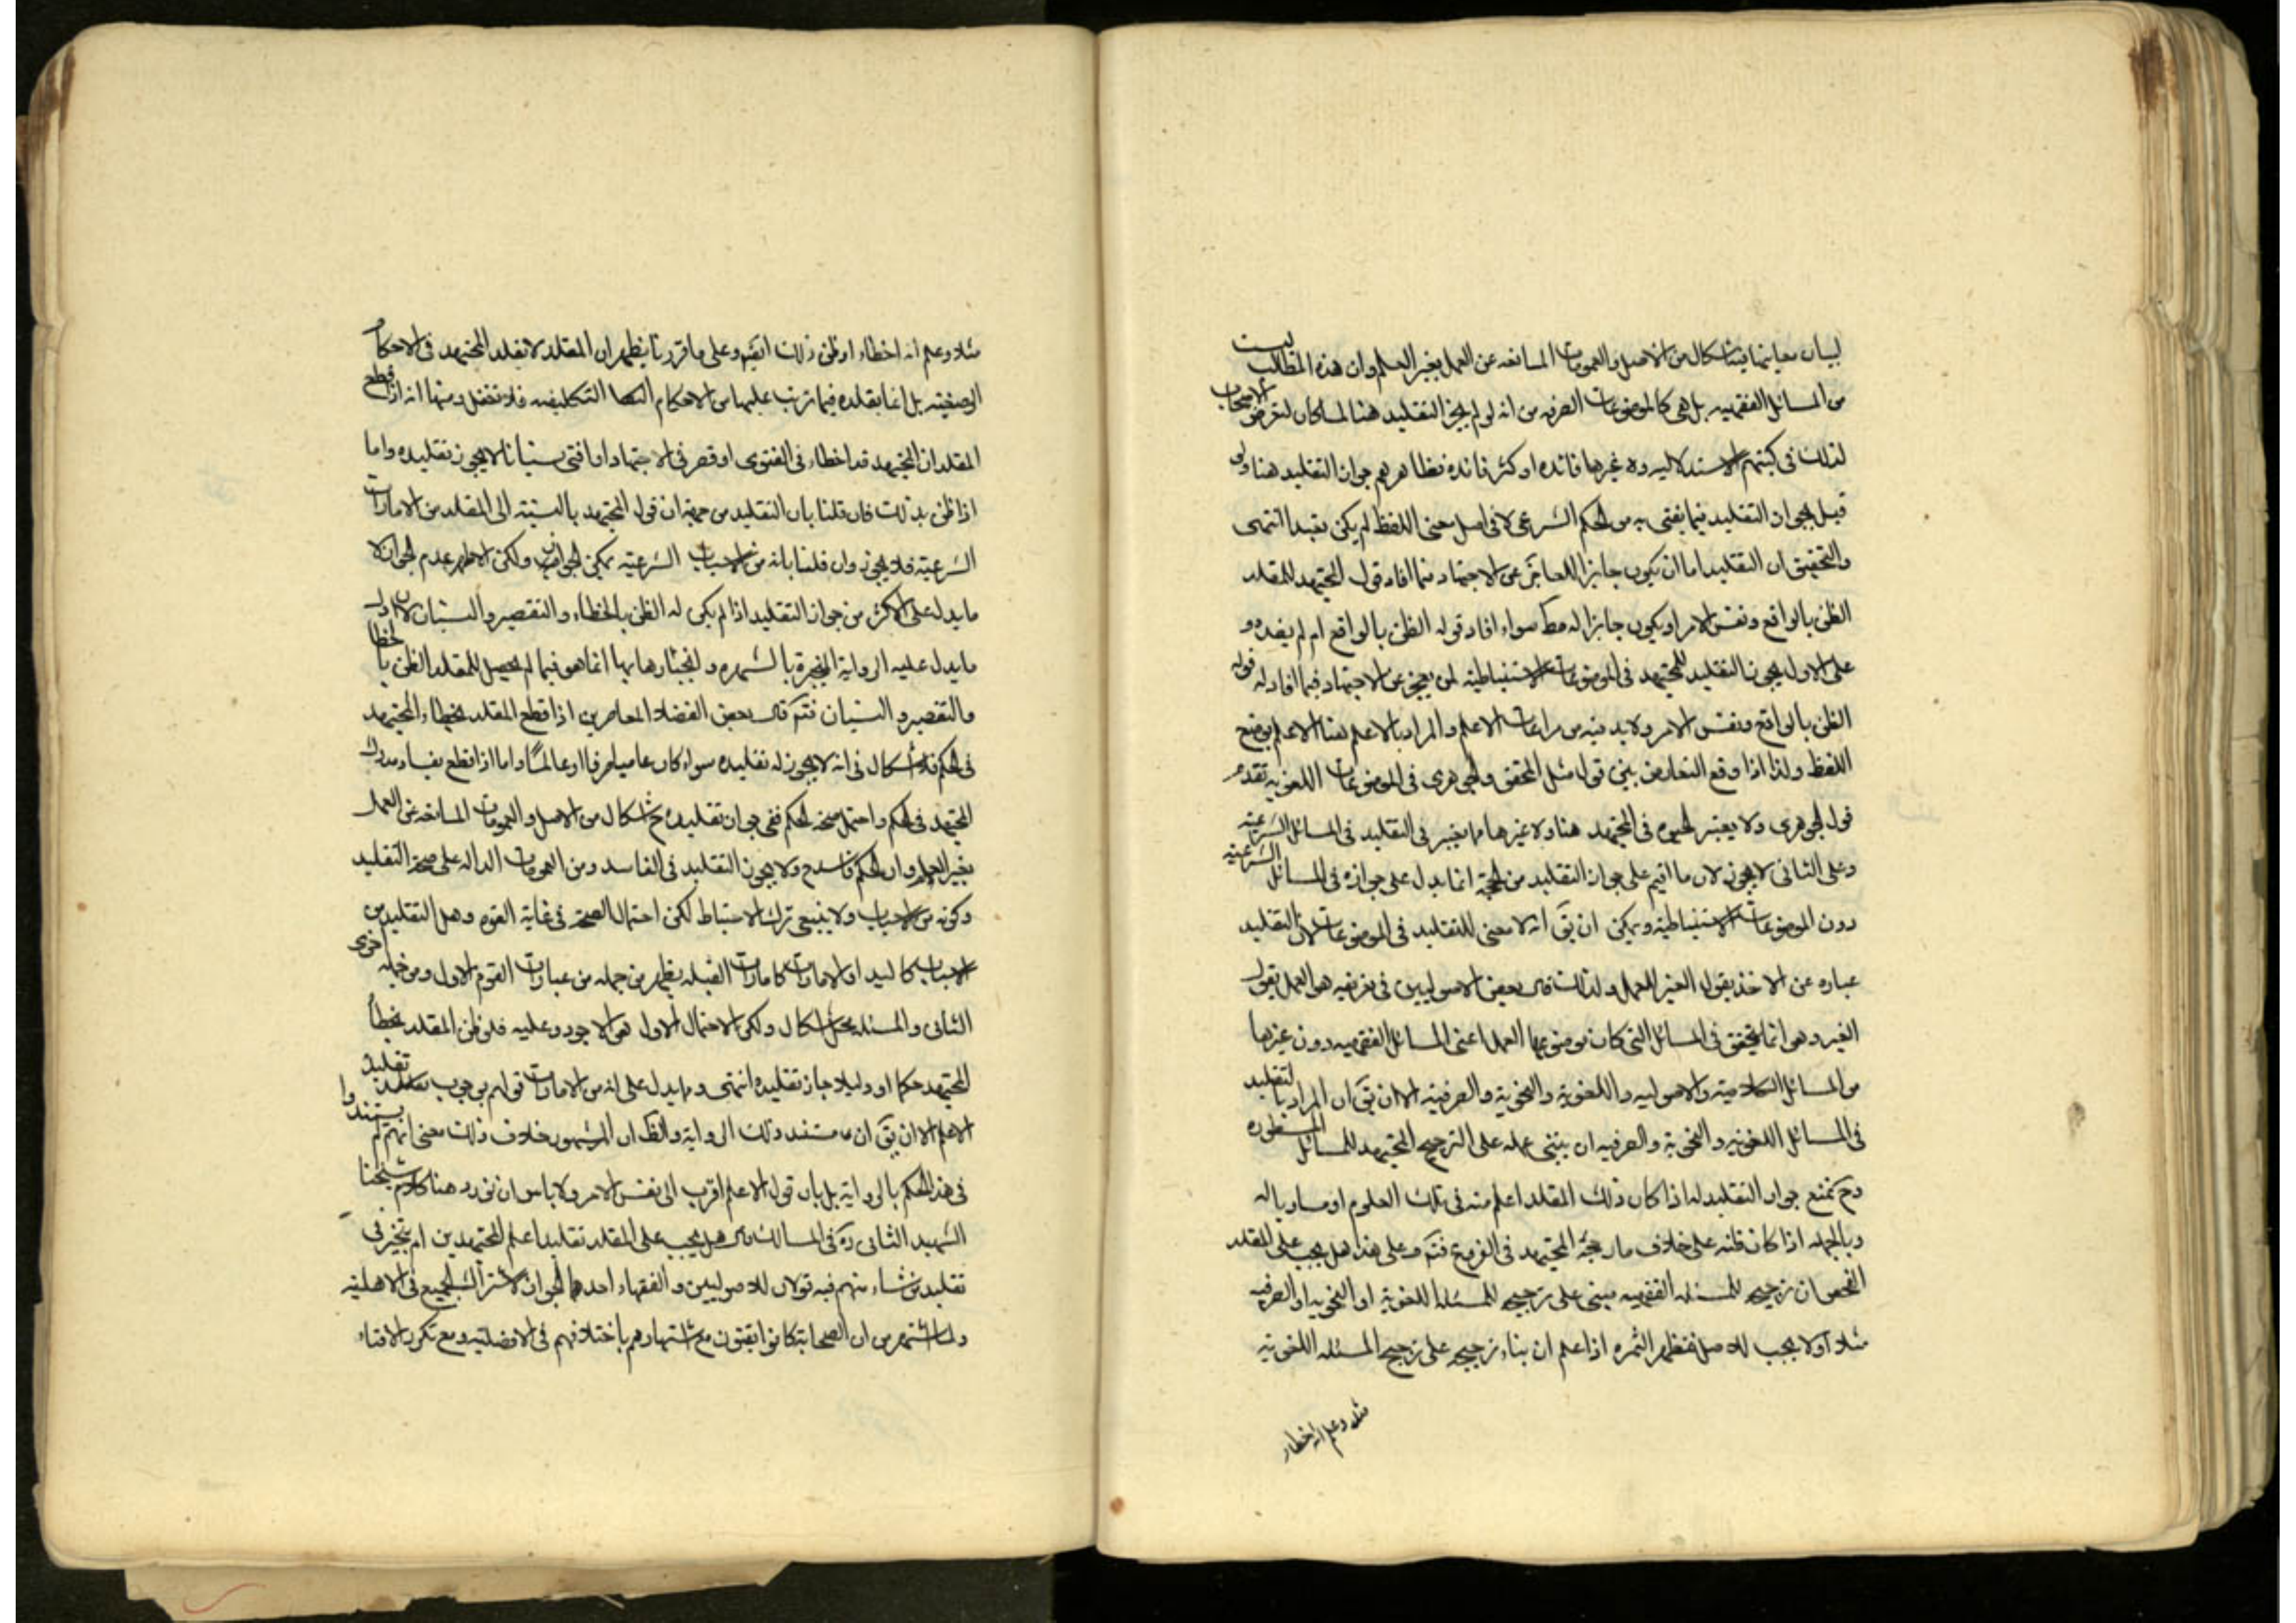 لبيان معانيها فيشكال من الاصل والعمومات المانعه عن العمل بغير العلم وان هذه المطالب ليست
من المسائل الفقهيه بل هى كالموضوعات الصرفه من انه لو لم يجز التقليد هنا لما كان لتعرض الاصحاب
لذلك فى كتبهم الاستدلاليه وغيرها فائده او كثر فائده فظاهرهم جواز التقليد هنا ولو
قيل بجواز التقليد فيما يفتى به من الحكم الشرعى لا فى اصل معنى اللفظ لم يكن بعيدا انتهى
والتحقيق ان التقليد اما ان يكون جايزا للعاجز عن الاجتهاد فيما افاد قول المجتهد للمقلد
الظن بالواقع ونفس الامر او يكون جايزا له مط سواء افاد قوله الظن بالواقع ام لم يفده و
على الاول يجوز التقليد للمجتهد فى الموضوعات الاستنباطية لمن يعجز عن الاجتهاد فيما افاد له قوله
الظن بالواقع ونفس الامر ولا بد فيه من مراعات الاعلم والمراد بالاعلم هنا الاعلم بوضع
اللفظ ولذا اذا وقع التعارض بين قول مثل المحقق والجوهرى فى الموضوعات اللغويه تقدم
قول الجوهرى ولا يعتبر الحيوه فى المجتهد هنا ولا غيرها مما يعتبر فى التقليد فى المسائل الشرعيه
وعلى الثانى لا يجوز لان ما اقيم على جواز التقليد من الحجة انما يدل على جوازه فى المسائل الشرعيه
دون الموضوعات الاستنباطية ويمكن ان يق انه لا معنى للتقليد فى الموضوعات لان التقليد
عباره عن الاخذ بقول الغير للعمل ولذلك قال بعض الاصوليين فى تعريفه هو العمل بقول
الغير وهو انما يتحقق فى المسائل التى كان موضوعها العمل اعنى المسائل الفقهيه دون غيرها
من المسائل الكلاميه والاصوليه واللغوية والنحوية والصرفيه الا ان يق ان المراد بالتقليد
فى المسائل اللغويه والنحوية والصرفيه ان يبتنى عمله على الترجيح المجتهد للمسائل المسطوره
وح يمنع جواز التقليد له اذا كان ذلك المقلد اعلم منه فى تلك العلوم او مساويا له
وبالجمله اذا كان ظنه على خلاف ما رجحه المجتهد فى الفروع فتم وعلى هذا هل يجب على المقلد
الفحص ان ترجيح المسئله الفقهيه مبنى على ترجيح المسئله اللغوية او النحويه او الصرفيه
مثلا او لا يجب للاصل فتظهر الثمره اذا علم ان بناء ترجيحه على ترجيح المسئله اللغويه
مثلا وعلم انه اخطاء
مثلا وعلم انه اخطاء او ظن ذلك ايضا وعلى ما قررنا يظهر ان المقلد لا يقلد المجتهد فى الاحكام
الوضعيه بل انما يقلده فيما ترتب عليها من الاحكام التكليفيه فلا تغفل ومنها انه اذا قطع
المقلد ان المجتهد قد اخطاء فى الفتوى او قصر فى الاجتهاد او افتى نسيانا لا يجوز تقليده واما
اذا ظن بذلك فان قلنا بان التقليد من جهة ان قول المجتهد بالنسبة الى المقلد من الامارات
الشرعية فلا يجوز وان قلنا بانه من الاسباب الشرعيه يمكن الجواز ولكن الاظهر عدم الجواز لان
ما يدل على الاكثر من جواز التقليد اذا لم يكن له الظن بالخطاء والتقصير والنسيان لان اول
ما يدل عليه الرواية المنجبرة بالشهره وانجبارها بها انما هو فيما لم يحصل للمقلد الظن بالخطا
والتقصير والنسيان فتم قال بعض الفضلاء المعاصرين اذا قطع المقلد بخطاء المجتهد
فى الحكم فلا اشكال فى انه لا يجوز له تقليده سواء كان عاميا صرفا او عالما واما اذا قطع بفساد مدرك
المجتهد فى الحكم واحتمل صحة الحكم ففى جواز تقليده ح اشكال من الاصل والعمومات المانعه عن العمل
بغير العلم وان الحكم فاسد ح ولا يجوز التقليد فى الفاسد ومن العمومات الداله على صحة التقليد
وكونه من الاسباب ولا ينبغى ترك الاحتياط لكن احتمال الصحة فى غاية القوه وهل التقليد من
الاسباب كاليد او الامارات كامارات القبله يظهر من جمله من عبارات القوم الاول ومن جمله اخرى
الثانى والمسئله محل اشكال ولكن الاحتمال الاول هو الاجود وعليه فلو ظن المقلد بخطأ
المجتهد حكما او دليلا جاز تقليده انتهى ومما يدل على انه من الامارات قولهم بوجوب تقليد
الاعلم الا ان يق ان مستند ذلك الرواية والظ ان المشهور خلاف ذلك معنى انهم لم يستندوا
فى هذا الحكم بالرواية بل بان قول الاعلم اقرب الى نفس الامر ولا باس ان نورد هنا كلام شيخنا
الشهيد الثانى ره فى المسالك قال هل يجب على المقلد تقليد اعلم المجتهدين ام يتخير فى
تقليد من شاء منهم فيه قولان للاصوليين والفقهاء احدهما الجواز لاشتراك الجميع فى الاهلية
ولما اشتهر من ان الصحابة كانوا يفتون مع اشتهارهم باختلافهم فى الافضليه ومع تكرر الافتاء